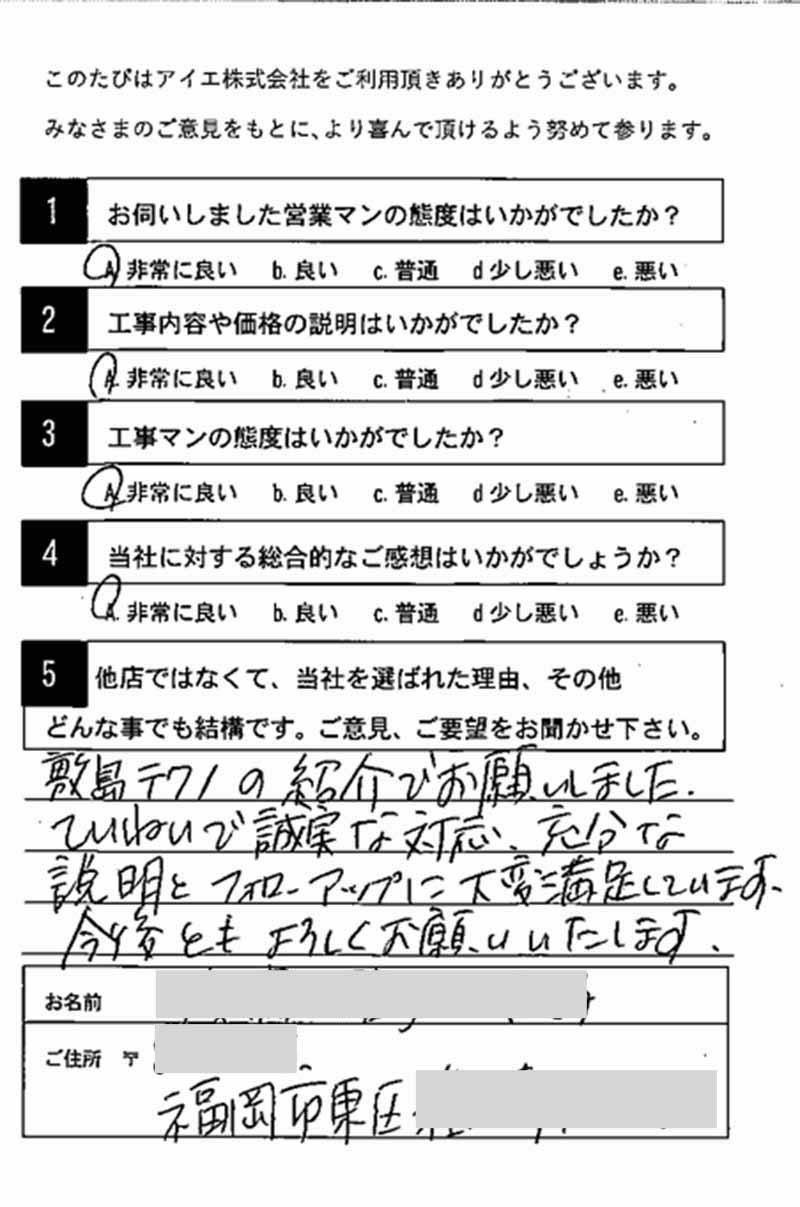 このたびはアイエ株式会社をご利用頂きありがとうございます。
みなさまのご意見をもとに、より喜んで頂けるよう努めて参ります。
1 お伺いしました営業マンの態度はいかがでしたか？
A 非常に良い b. 良い c. 普通 d 少し悪い e. 悪い
2 工事内容や価格の説明はいかがでしたか？
A. 非常に良い b. 良い c. 普通 d 少し悪い e. 悪い
3 工事マンの態度はいかがでしたか？
A. 非常に良い b. 良い c. 普通 d 少し悪い e. 悪い
4 当社に対する総合的なご感想はいかがでしょうか？
A. 非常に良い b. 良い c. 普通 d 少し悪い e. 悪い
5 他店ではなくて、当社を選ばれた理由、その他
どんな事でも結構です。ご意見、ご要望をお聞かせ下さい。
敷島テクノの紹介でお願いしました.
ていねいで誠実な対応、充分な
説明とフォローアップに大変満足しています。
今後ともよろしくお願いいたします.
お名前
ご住所 〒
福岡市東区